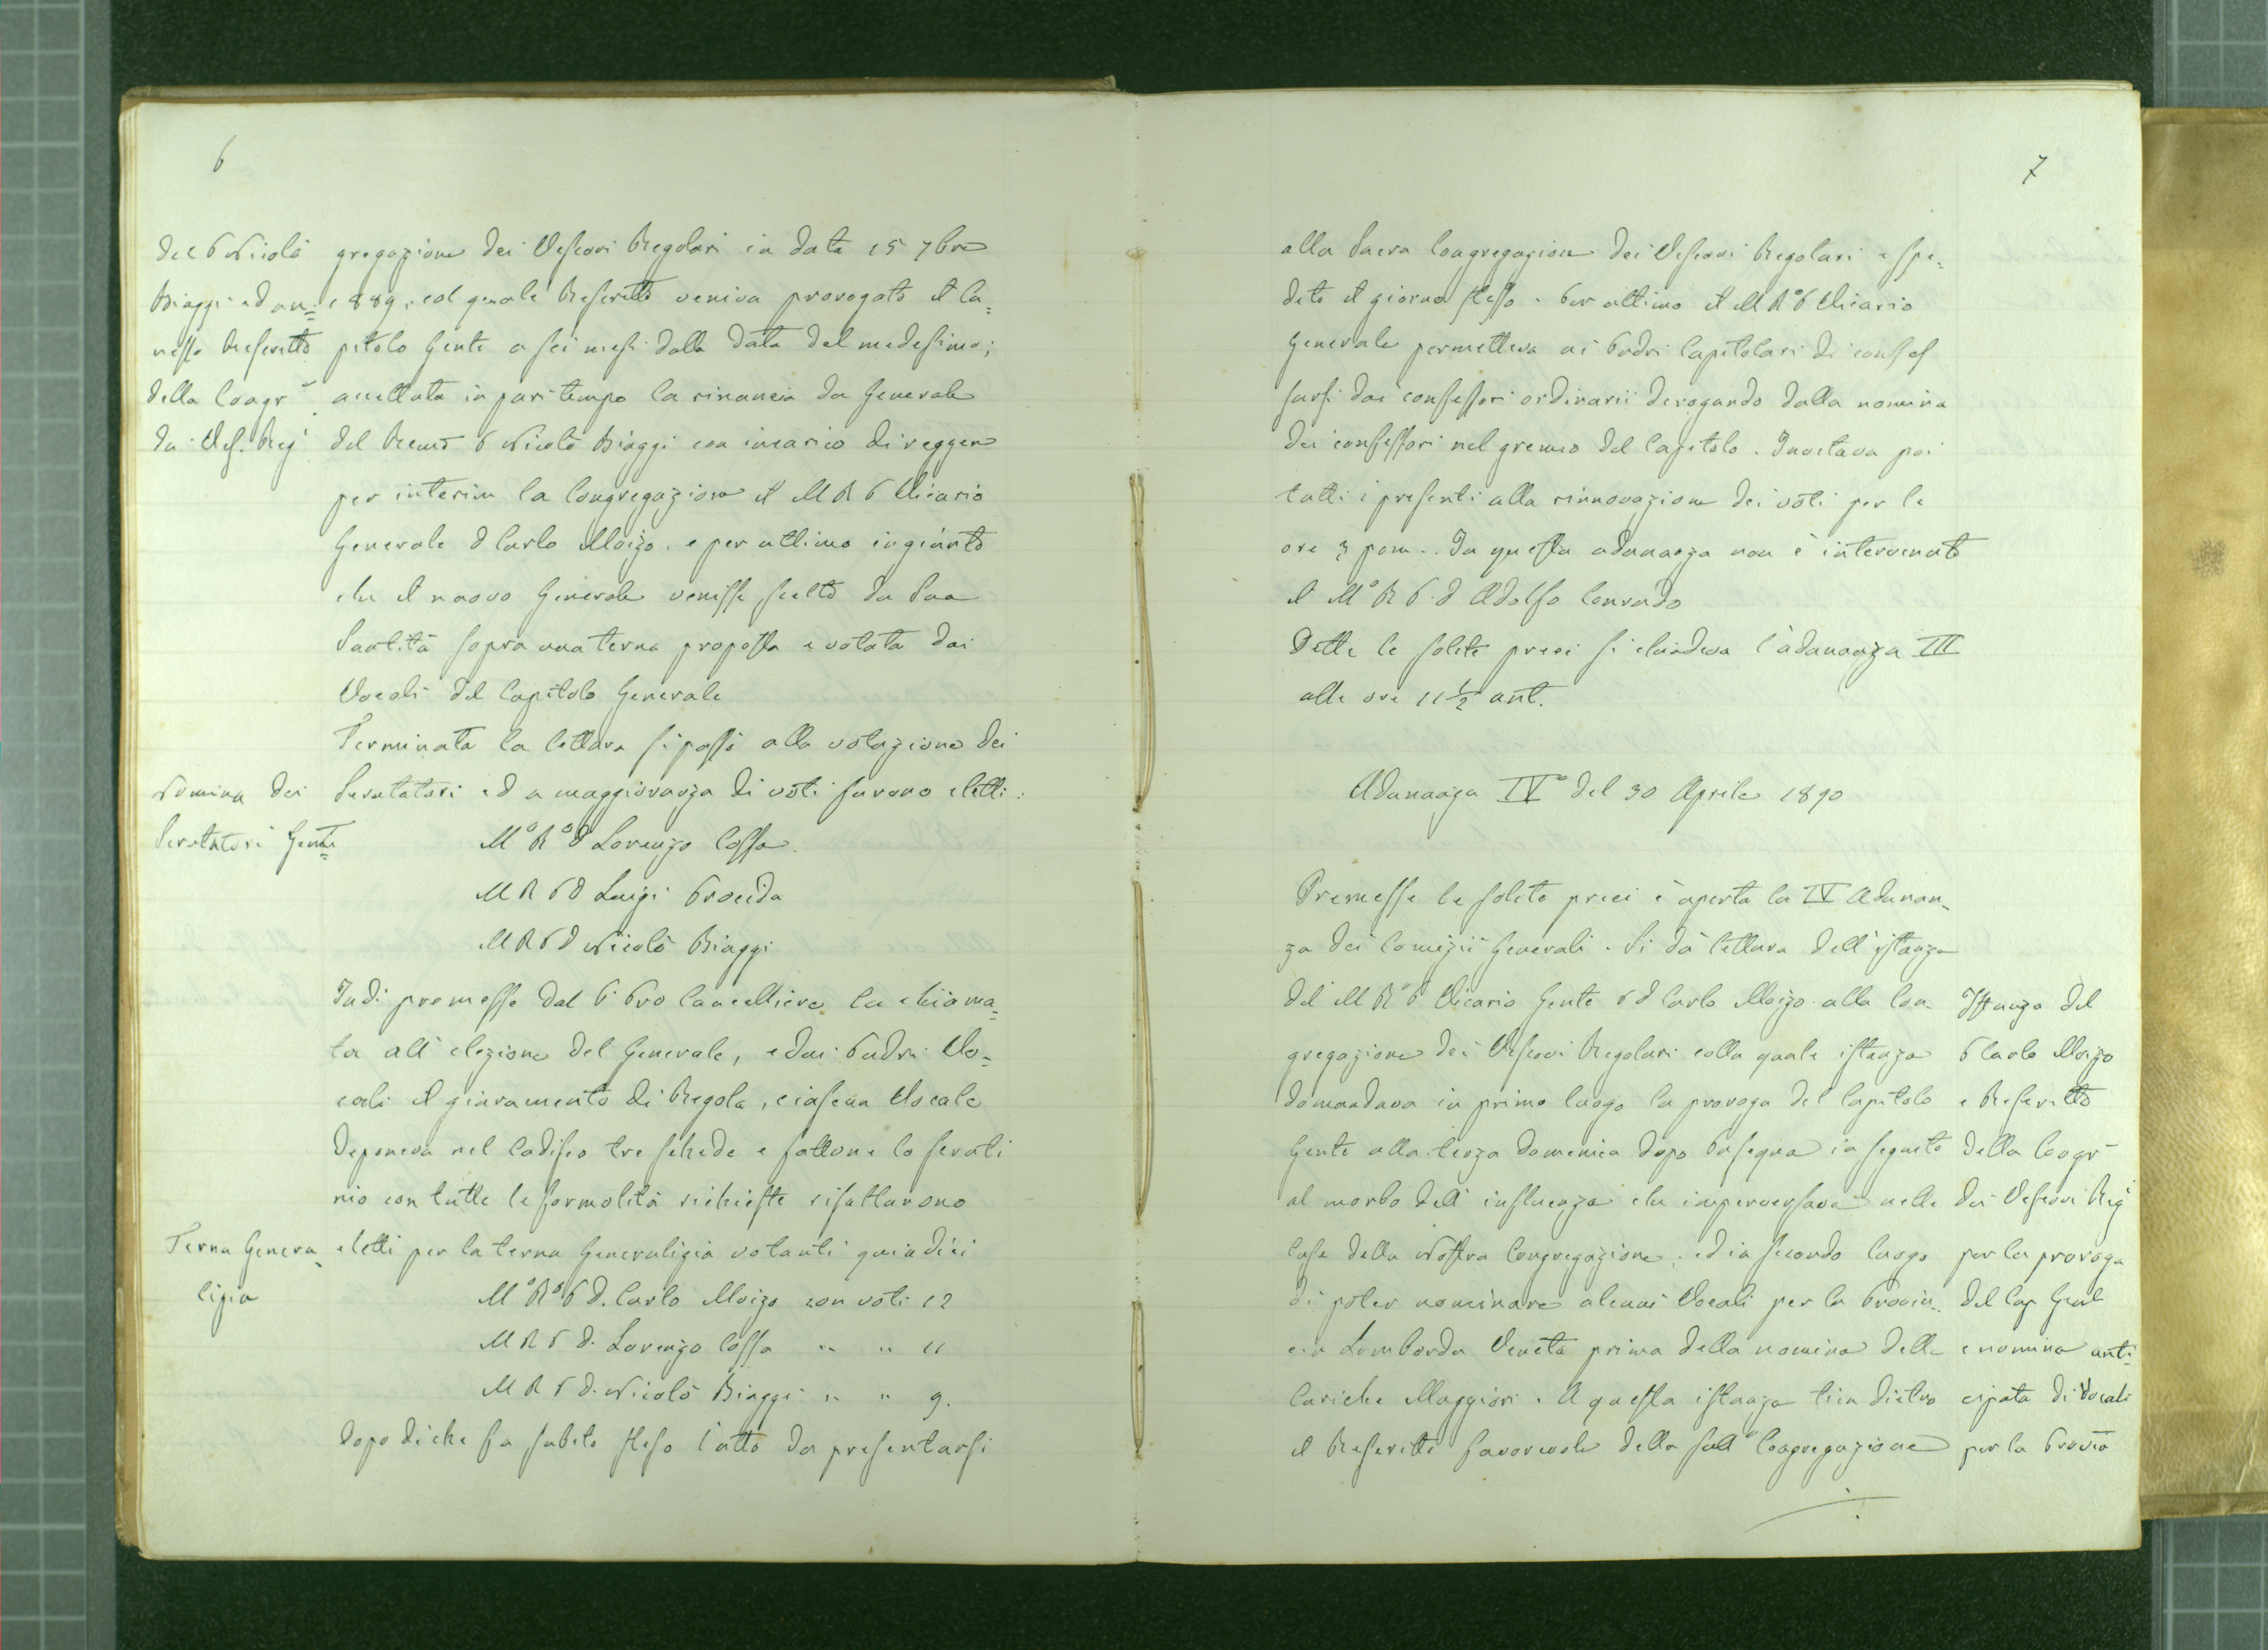 6
del P Nicolò
Biaggi ed an=
nesso Rescritto
della Congr
dei Vesc. Reg
gregazione dei Vescovi Regolari in data 15 7bre
1889, col quale Rescritto veniva prorogato il Ca=
pitolo Genle a sei mesi dalla data del medesimo;
accettata in pari tempo la rinuncia da Generale
del Revmo P Nicolò Biaggi con incarico di reggere
per interim la Congregazione il M R P Vicario
Generale D Carlo Moizo. e per ultimo ingiunto
che il nuovo Generale venisse scelto da Sua
Santità sopra una terna proposta e votata dai
Vocali del Capitolo Generale
Terminata la lettura si passò alla votazione dei
Nomina dei
Scrutatori Genli
Scrutatori ed a maggioranza di voti furono eletti:
M° R° D Lorenzo Cossa.
M R P D Luigi Procida
M R P D Nicolò Biaggi
Indi premesse dal P. Pro Cancelliere la chiama=
ta all'elezione del Generale, e dai Padri Vo=
cali il giuramento di Regola, ciascun Vocale
deponeva nel Cadisco tre schede e fattone lo scruti
nio con tutte le formolità richieste risultarono
Terna Genera
lizia
eletti per la terna Generalizia votanti quindici
M° R° P D. Carlo Moizo con voti 12
M R P D. Lorenzo Cossa " " 11
M R P D. Nicolò Biaggi " " 9.
dopo di che fu subito steso l'atto da presentarsi
7
alla Sacra Congregazione dei Vescovi Regolari e spe=
dito il giorno stesso. Per ultimo il M R° P Vicario
Generale permetteva ai Padri Capitolari di confes
sarsi dai confessori ordinarii derogando dalla nomina
dei confessori nel gremio del Capitolo. Invitava poi
tutti i presenti alla rinnovazione dei voti per le
ore 3 pom.. In questa adunanza non è intervenuto
il M° R P. D Adolfo Conrado
Dette le solite preci si chiudeva l'adunanza III
alle ore 11 1/2 ant.
Adunanza IVa del 30 Aprile 1890
Premesse le solite preci è aperta la IV Adunan=
za dei Comizii Generali. Si dà lettura dell'istanza
del M R° P Vicario Genle P D Carlo Moizo alla Con
gregazione dei Vescovi Regolari colla quale istanza
domandava in primo luogo la proroga del Capitolo
Genle alla terza domenica dopo Pasqua in seguito
al morbo dell'influenza che imperversava nelle
Case della Nostra Congregazione; ed in secondo luogo
di poter nominare alcuni Vocali per la Provin=
cia Lombarda Veneta prima della nomina delle
Cariche Maggiori. A questa istanza tien dietro
il Rescritto favorevole della Congregazione
Istanza del
P Carlo Moizo
e Rescritto
della Congr
dei Vescovi Reg
per la proroga
del Cap Genl
e nomina anti=
cipata di Vocali
per la Provia